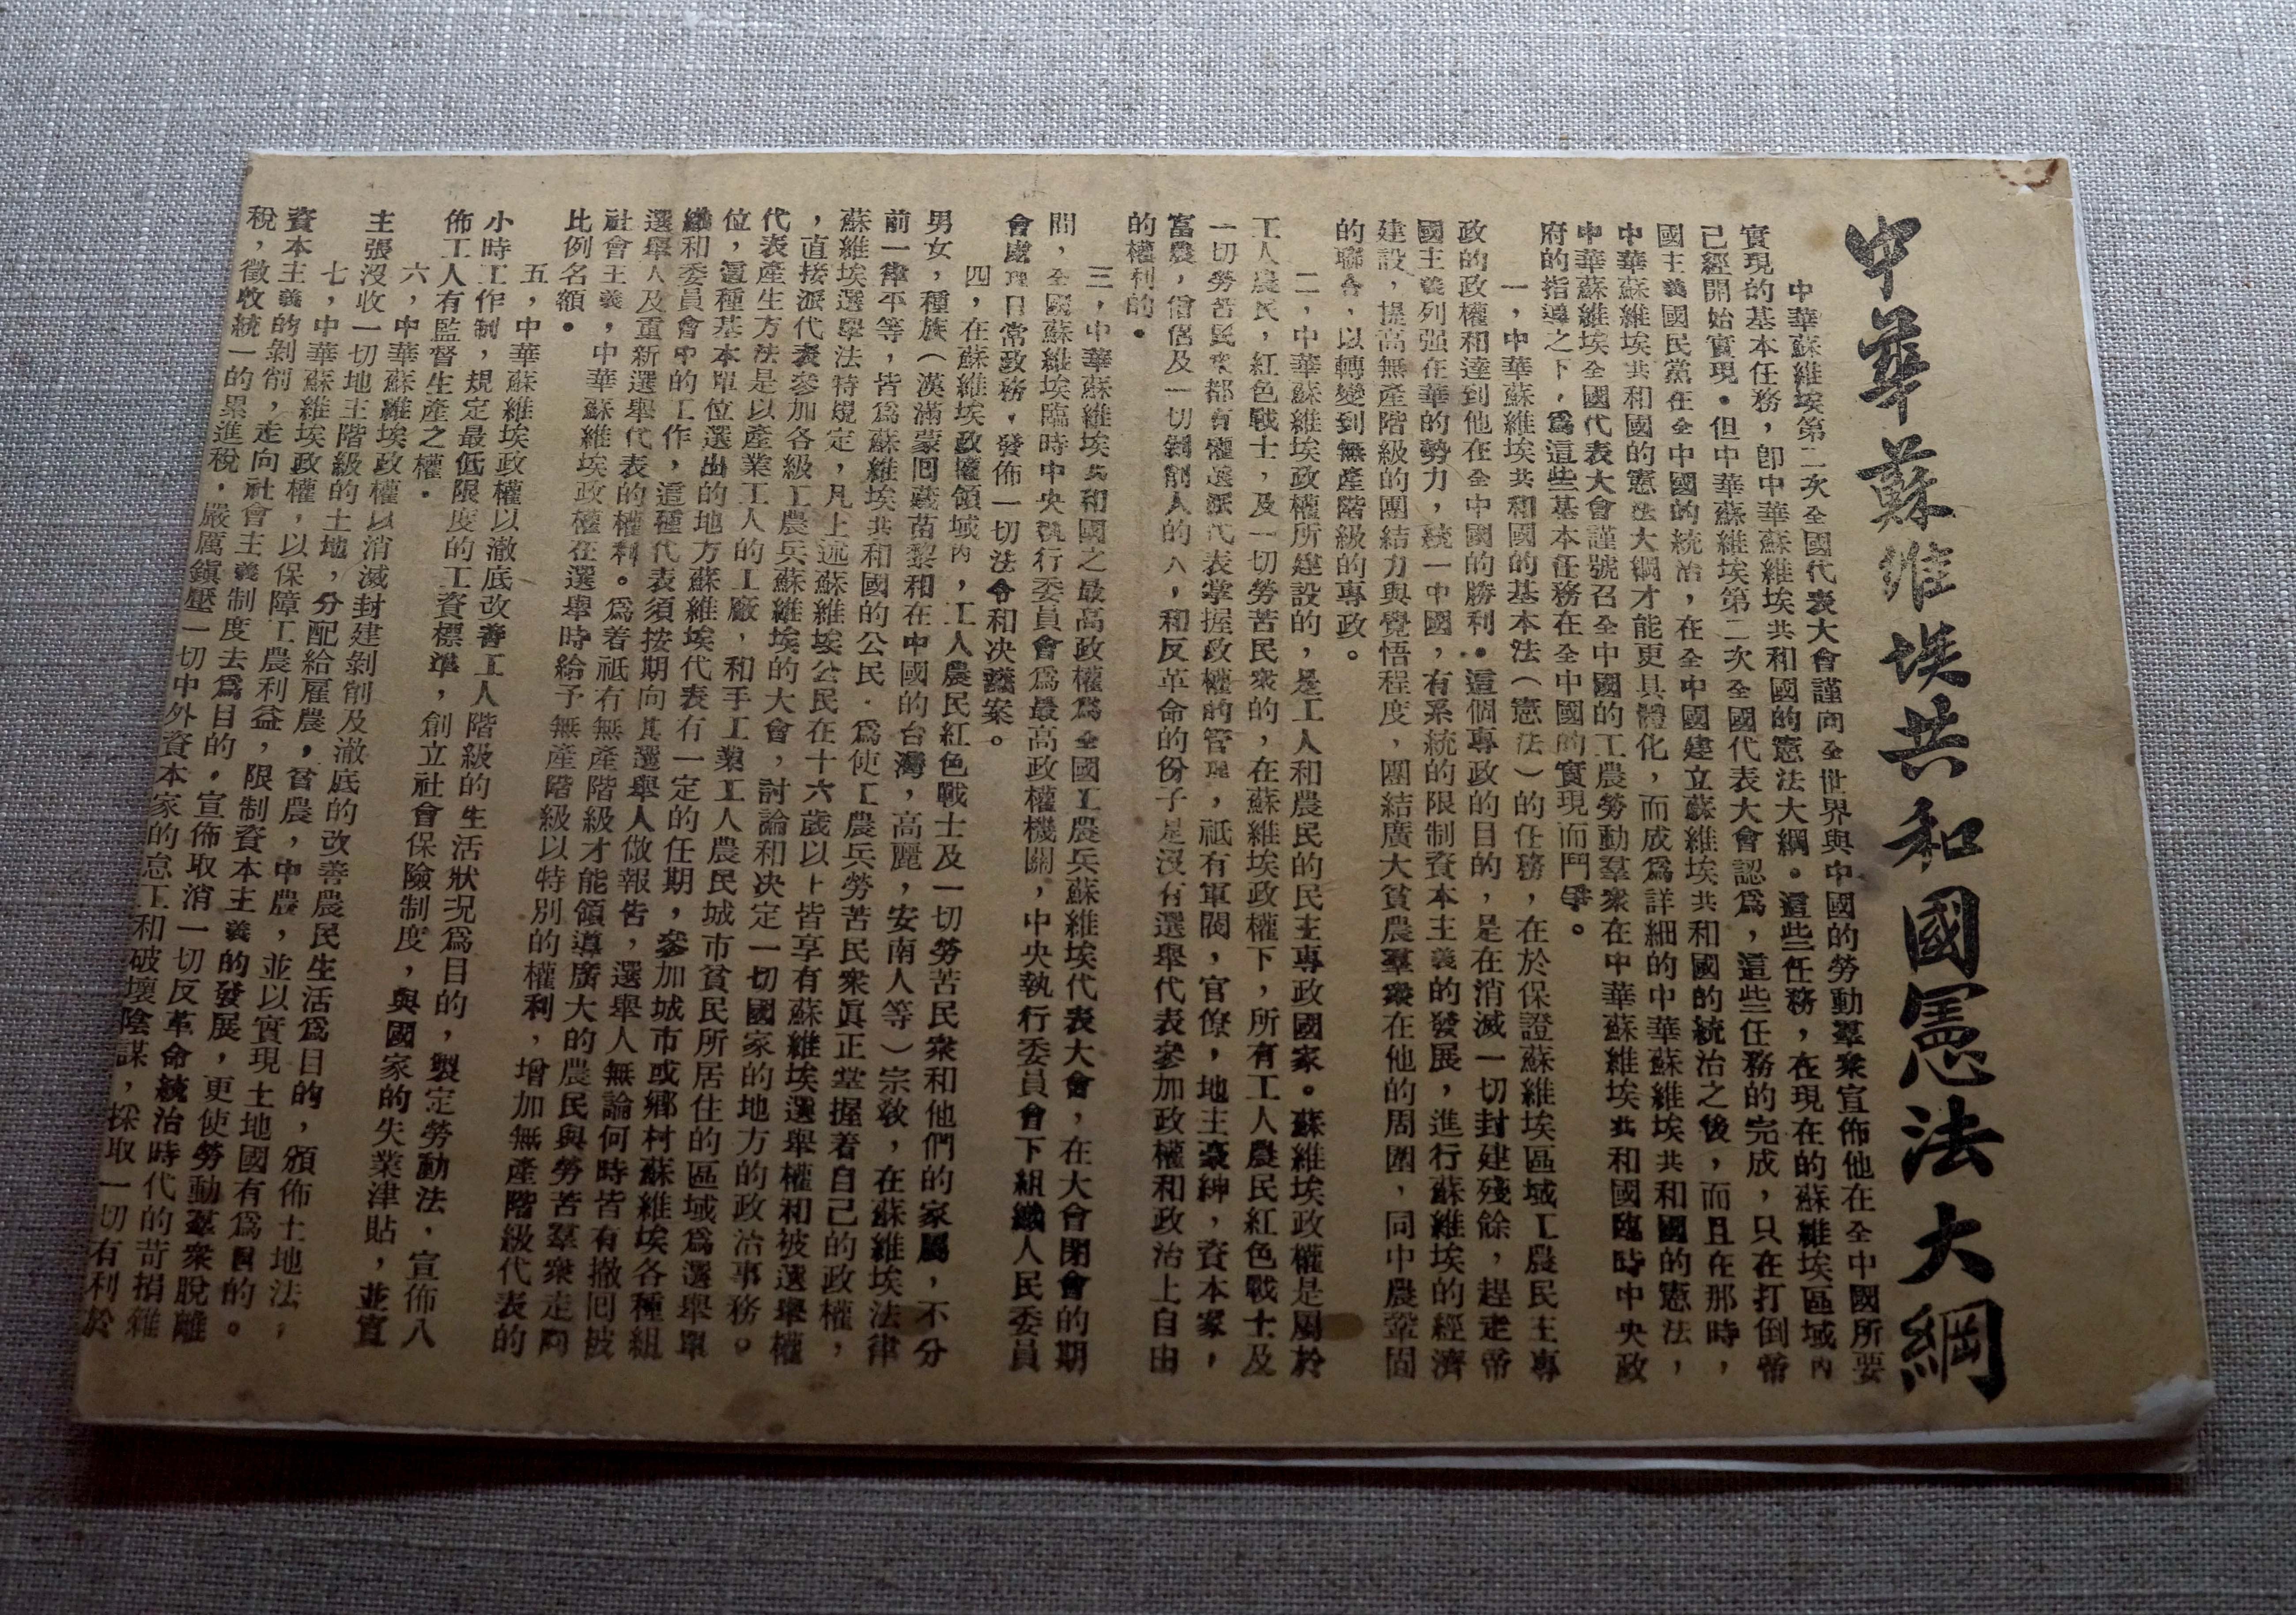 中華蘇維埃共和國憲法大綱
中華蘇維埃第二次全國代表大會謹向全世界與中國的勞動羣衆宣佈他在全中國所要
實現的基本任務，卽中華蘇維埃共和國的憲法大綱。這些任務，在現在的蘇維埃區域內
已經開始實現。但中華蘇維埃第二次全國代表大會認爲，這些任務的完成，只在打倒帝
國主義國民黨在全中國的統治，在全中國建立蘇維埃共和國的統治之後，而且在那時，
中華蘇維埃共和國的憲法大綱才能更具體化，而成爲詳細的中華蘇維埃共和國的憲法，
中華蘇維埃全國代表大會謹號召全中國的工農勞動羣衆在中華蘇維埃共和國臨時中央政
府的指導之下，爲這些基本任務在全中國的實現而鬥爭。
一，中華蘇維埃共和國的基本法（憲法）的任務，在於保證蘇維埃區域工農民主專
政的政權和達到他在全中國的勝利。這個專政的目的，是在消滅一切封建殘餘，趕走帝
國主義列强在華的勢力，統一中國，有系統的限制資本主義的發展，進行蘇維埃的經濟
建設，提高無產階級的團結力與覺悟程度，團結廣大貧農羣衆在他的周圍，同中農鞏固
的聯合，以轉變到無產階級的專政。
二，中華蘇維埃政權所建設的，是工人和農民的民主專政國家。蘇維埃政權是屬於
工人農民，紅色戰士，及一切勞苦民衆的，在蘇維埃政權下，所有工人農民紅色戰士及
一切勞苦民衆都有權選派代表掌握政權的管理，祇有軍閥，官僚，地主豪紳，資本家，
富農，僧侶及一切剝削人的人，和反革命的份子是沒有選舉代表參加政權和政治上自由
的權利的。
三，中華蘇維埃共和國之最高政權爲全國工農兵蘇維埃代表大會，在大會閉會的期
間，全國蘇維埃臨時中央執行委員會爲最高政權機關，中央執行委員會下組織人民委員
會處理日常政務，發佈一切法令和决議案。
四，在蘇維埃政權領域內，工人農民紅色戰士及一切勞苦民衆和他們的家屬，不分
男女，種族（漢滿蒙囘藏苗黎和在中國的台灣，高麗，安南人等）宗敎，在蘇維埃法律
前一律平等，皆爲蘇維埃共和國的公民．爲使工農兵勞苦民衆眞正掌握着自己的政權，
蘇維埃選舉法特規定，凡上述蘇維埃公民在十六歲以上皆享有蘇維埃選舉權和被選舉權
，直接派代表參加各級工農兵蘇維埃的大會，討論和决定一切國家的地方的政治事務。
代表產生方法是以產業工人的工廠，和手工業工人農民城市貧民所居住的區域爲選舉單
位，這種基本單位選出的地方蘇維埃代表有一定的任期，參加城市或鄉村蘇維埃各種組
織和委員會中的工作，這種代表須按期向其選舉人做報告，選舉人無論何時皆有撤囘被
選舉人及重新選舉代表的權利。爲着祇有無產階級才能領導廣大的農民與勞苦羣衆走向
社會主義，中華蘇維埃政權在選舉時給予無產階級以特別的權利，增加無產階級代表的
比例名額。
五，中華蘇維埃政權以澈底改善工人階級的生活狀况爲目的，製定勞動法，宣佈八
小時工作制，規定最低限度的工資標準，創立社會保險制度，與國家的失業津貼，並宣
佈工人有監督生產之權。
六，中華蘇維埃政權以消滅封建剝削及澈底的改善農民生活爲目的，頒佈土地法，
主張沒收一切地主階級的土地，分配給雇農，貧農，中農，並以實現土地國有爲目的。
七，中華蘇維埃政權，以保障工農利益，限制資本主義的發展，更使勞動羣衆脫離
資本主義的剝削，走向社會主義制度去爲目的，宣佈取消一切反革命統治時代的苛捐雜
稅，徵收統一的累進稅，嚴厲鎭壓一切中外資本家的怠工和破壞陰謀，採取一切有利於